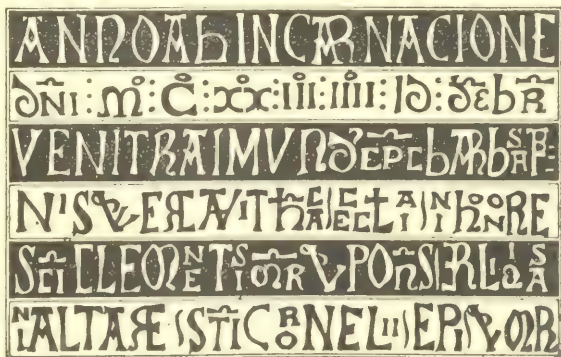 ANNO AB INCARNACIONE
DNI : M : C : XX : III : IIII : ID : DEBR
VENIT RAIMUND EPC BARB
ECLA IN HONORE
SCI CLEMENTIS MR & PONS RLIQAS
IN ALTARE SCI CORNELII EPI & MR